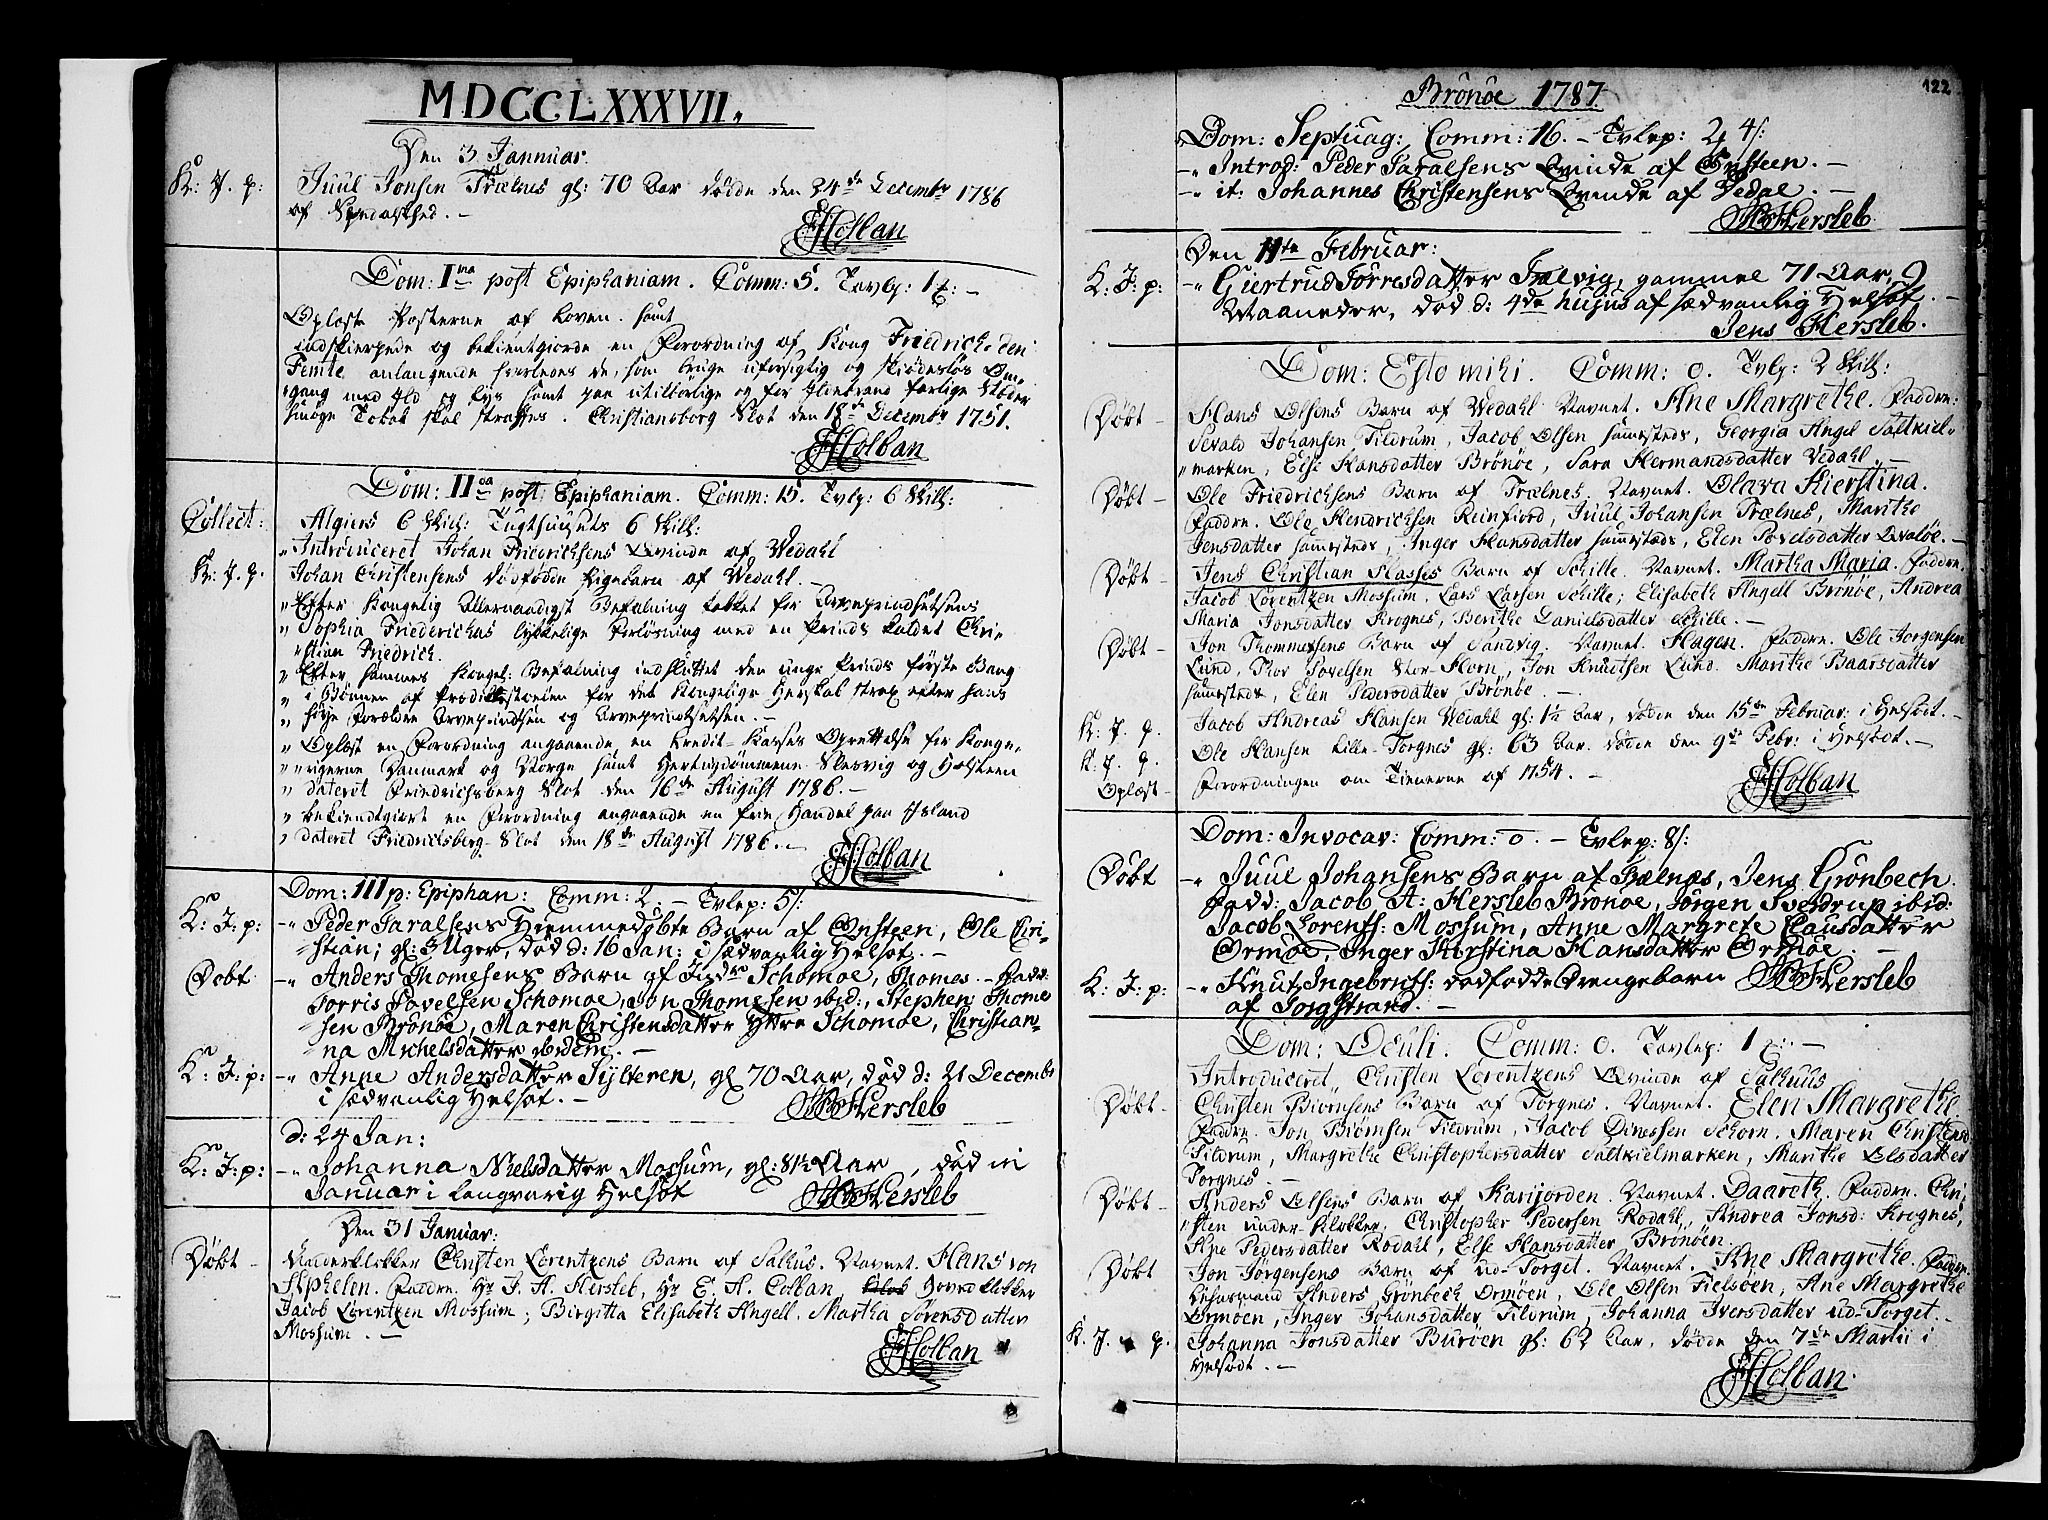 MDCCLXXXVII.
Den 3 Jannuar.
K: J. p:
Juul Jonsen Trælnes gl: 70 Aar døde den 24de Decembr 1786
af
EHColban
Dom: Ima post Epiphaniam. Comm: 5. Tavlp: 1
Oplæst Posterne af Loven. samt
indskierpede og bekientgiorde en Forordning af Kong Friedrich den
Femte anlangende hvorledes de, som bruge uforsigtig og skiødesløs Om,,
,,gang med Ild og Lys samt paa utilbørlige og for Ildebrand farlige Stæder
smøge Tobak skal straffes. Christiansborg Slot den 18de Decembr 1751.
EHColban
Dom: IIda post Epiphaniam. Comm: 15. Tvlp: 6 Skill:
Collect:
Algiers 6 Skill: Tugthuusets 6 Skill:
,,Introduceret Johan Friedrichsens Qvinde af Wedahl
K: J. p.
Johan Christensens dødfødde Pigebarn af Wedahl. -
,,Efter Kongelig Allernaadigst Befalning takket for Arveprindsessens
,, Sophia Friederichas lykkelige Forløsning med en Prinds kaldet Chri-
,,stian Friedrich.
,, Efter sammes Kongel: Befalning indsluttet den unge Prinds første Gang
,, i Bønnen af Prædikestoelen for det Kongelige Herskab strax efter hans
,, høye Forældre Arveprindsen og Arveprindsessen. -
,, Oplæst en Forordning angaaende en Credit-Kasses Oprettelse for Konge,,
,,rigerne Danmark og Norge samt Hertugdømmene Slesvig og Holsteen
,, dateret Friedrichsberg Slot den 16de August 1786. -
,, bekiendtgiort en Forordning angaaende en frie Handel paa Island
,, dateret Friedrichsberg-Slot den 18de August 1786. -
EHColban
Dom: III p: Epiphan: Comm: 2. - Tvlep: 5/:
K: J: p:
-,, Peder Saralsens Hiemmedøbte Barn af Onsteen, Ole Chri-
stian; gl: 3 Uger, død d: 16 Jan: i sædvanlig Helsot. -
Døbt
-,, Anders Thomesens Barn af Indr Schomoe, Thomes. - Fadd:
Torris Povelsen Schomoe, Jon Thomesen ibid:, Stephen Thome
sen Brønøe, Maren Christensdatter Yttre Schomoe, Christian-
na Michelsdatter ibidem. -
K: J: p:
-,, Anne Andersdatter Sylteren, gl 70 Aar, død d: 21 Decembr
i sædvanlig Helsot. -
JAHersleb
d: 24 Jan:
K: J: p:
-,, Johanna Nielsdatter Mossum, gl: 81½ Aar, død in
Januar i langvarig Helsot
JAHersleb
Den 31 Januar:
Døbt
Underklokker Christen Lorentzens Barn af Salhus. Navnet. Hans von
Aphelen. Faddr. Hr J. A. Hersleb, Hr E. H. Colban, Hovedklokker
Jacob Lorentzen Mossum; Birgitta Elisabeth Angell, Martha Sørensdatter
Mossum. -
EHColban
Brönöe 1787
122
Dom: Septuag: Comm: 16. - Tvlep: 2 4/:
-,, Introd: Peder Saralsens Qvinde af Onsteen. -
-,, it: Johannes Christensens Qvinde af Vedal. -
JAHersleb
Den 11te Februar:
K: J: p:
-,, Giertrud Torresdatter Tælvig, gammel 71 Aar, 9
Maaneder, død d: 4de hujus af sædvanlig Helsot. -
Jens Hersleb.
Dom: Esto mihi. Comm: 0. Tvlp: 2 Skill:
Døbt -
Hans Olsens Barn af Wedahl. Navnet. Ane Margrethe. Faddr:
Sevald Johansen Tildrum, Jacob Olsen sammesteds, Georgia Angel Saltkiel,,
,,marken, Else Hansdatter Brönöe, Sara Hermandsdatter Vedahl. -
Døbt -
Ole Friedrichsens Barn af Trælnes. Navnet. Olava Kierstina.
Faddr. Ole Hendrichsen Reinfiord, Juul Johansen Trælnes, Marithe
Jensdatter sammesteds, Inger Hansdatter sammesteds, Elen Povelsdatter Qvaløe. -
Døbt -
Jens Christian Hasses Barn af Schille. Navnet. Martha Maria. Faddr.
Jacob Lorentzen Mossum, Lars Larsen Schille; Elisabeth Angell Brönöe, Andrea
Maria Jonsdatter Krognes, Berithe Danielsdatter Schille. -
Døbt -
Jon Thommesens Barn af Sandvig. Navnet. Hagen. Faddr. Ole Jørgensen
Lund, Thor Povelsen Stor-Horn, Jon Knudtsen Lund. Marithe Baarsdatter
sammesteds, Elen Pedersdatter Brönöe. -
K: J. p.
Jacob Andreas Hansen Wedahl gl: 1¼ Aar, døde den 15de Februar: i Helsot. -
K. J. p.
Ole Hansen Lille-Torgnes gl: 63 Aar. døde den 9de Febr: i Helsot. -
Oplæst -
Forordningen om Tienerne af 1754. -
EHColban
Dom: Invocav: Comm: 0. - Tvlep: 8/:
Døbt
-,, Juul Johansens Barn af Trælnæs, Jens Grönbech
Fadd: Jacob A: Hersleb Brønoe, Jørgen Sverdrup ibid:
Jacob Lorents: Mossum, Anne Margrete Clausdatter
Ormöe, Inger Kirstina Hansdatter Ormöe. -
K: J: p:
-,, Knut Ingebrits: dødfødde Drengebarn
af Torgstrand. -
JAHersleb
Dom: Oculi. Comm: 0. Tavlep: 1
Introduceret,, Christen Lorentzens Qvinde af Salhuus
Døbt -
Christen Biørnsens Barn af Torgnes. Navnet. Elen Margrethe
Faddr. Jon Biørnsen Tildrum, Jacob Dinessen Schorn. Maren Christensd
Tildrum, Margrethe Christophersdatter Saltkielmarken, Marithe Olsdatter
Torgnes. -
Døbt -
Anders Olsens Barn af Karijorden. Navnet. Daareth. Faddr. Chri,
,,sten under-klokker, Christopher Pedersen Rodahl, Andrea Jonsd: Krognes,
Ane Pedersdatter Rodahl, Else Hansdatter Brönöen.
Døbt
Jon Jörgensens Barn af ud-Torget. Navnet. Ane Margrethe. Faddr.
Anders Grönbech Ormöen, Ole Olsen Fielsöen, Ane Margrethe
Ormöen, Inger Johansdatter Tildrum, Johanna Iversdatter ud-Torget. -
K. J. p.
Johanna Jonsdatter Buröen gl: 62 Aar, døde den 7de Martii i
Helsodt. -
EHColban.